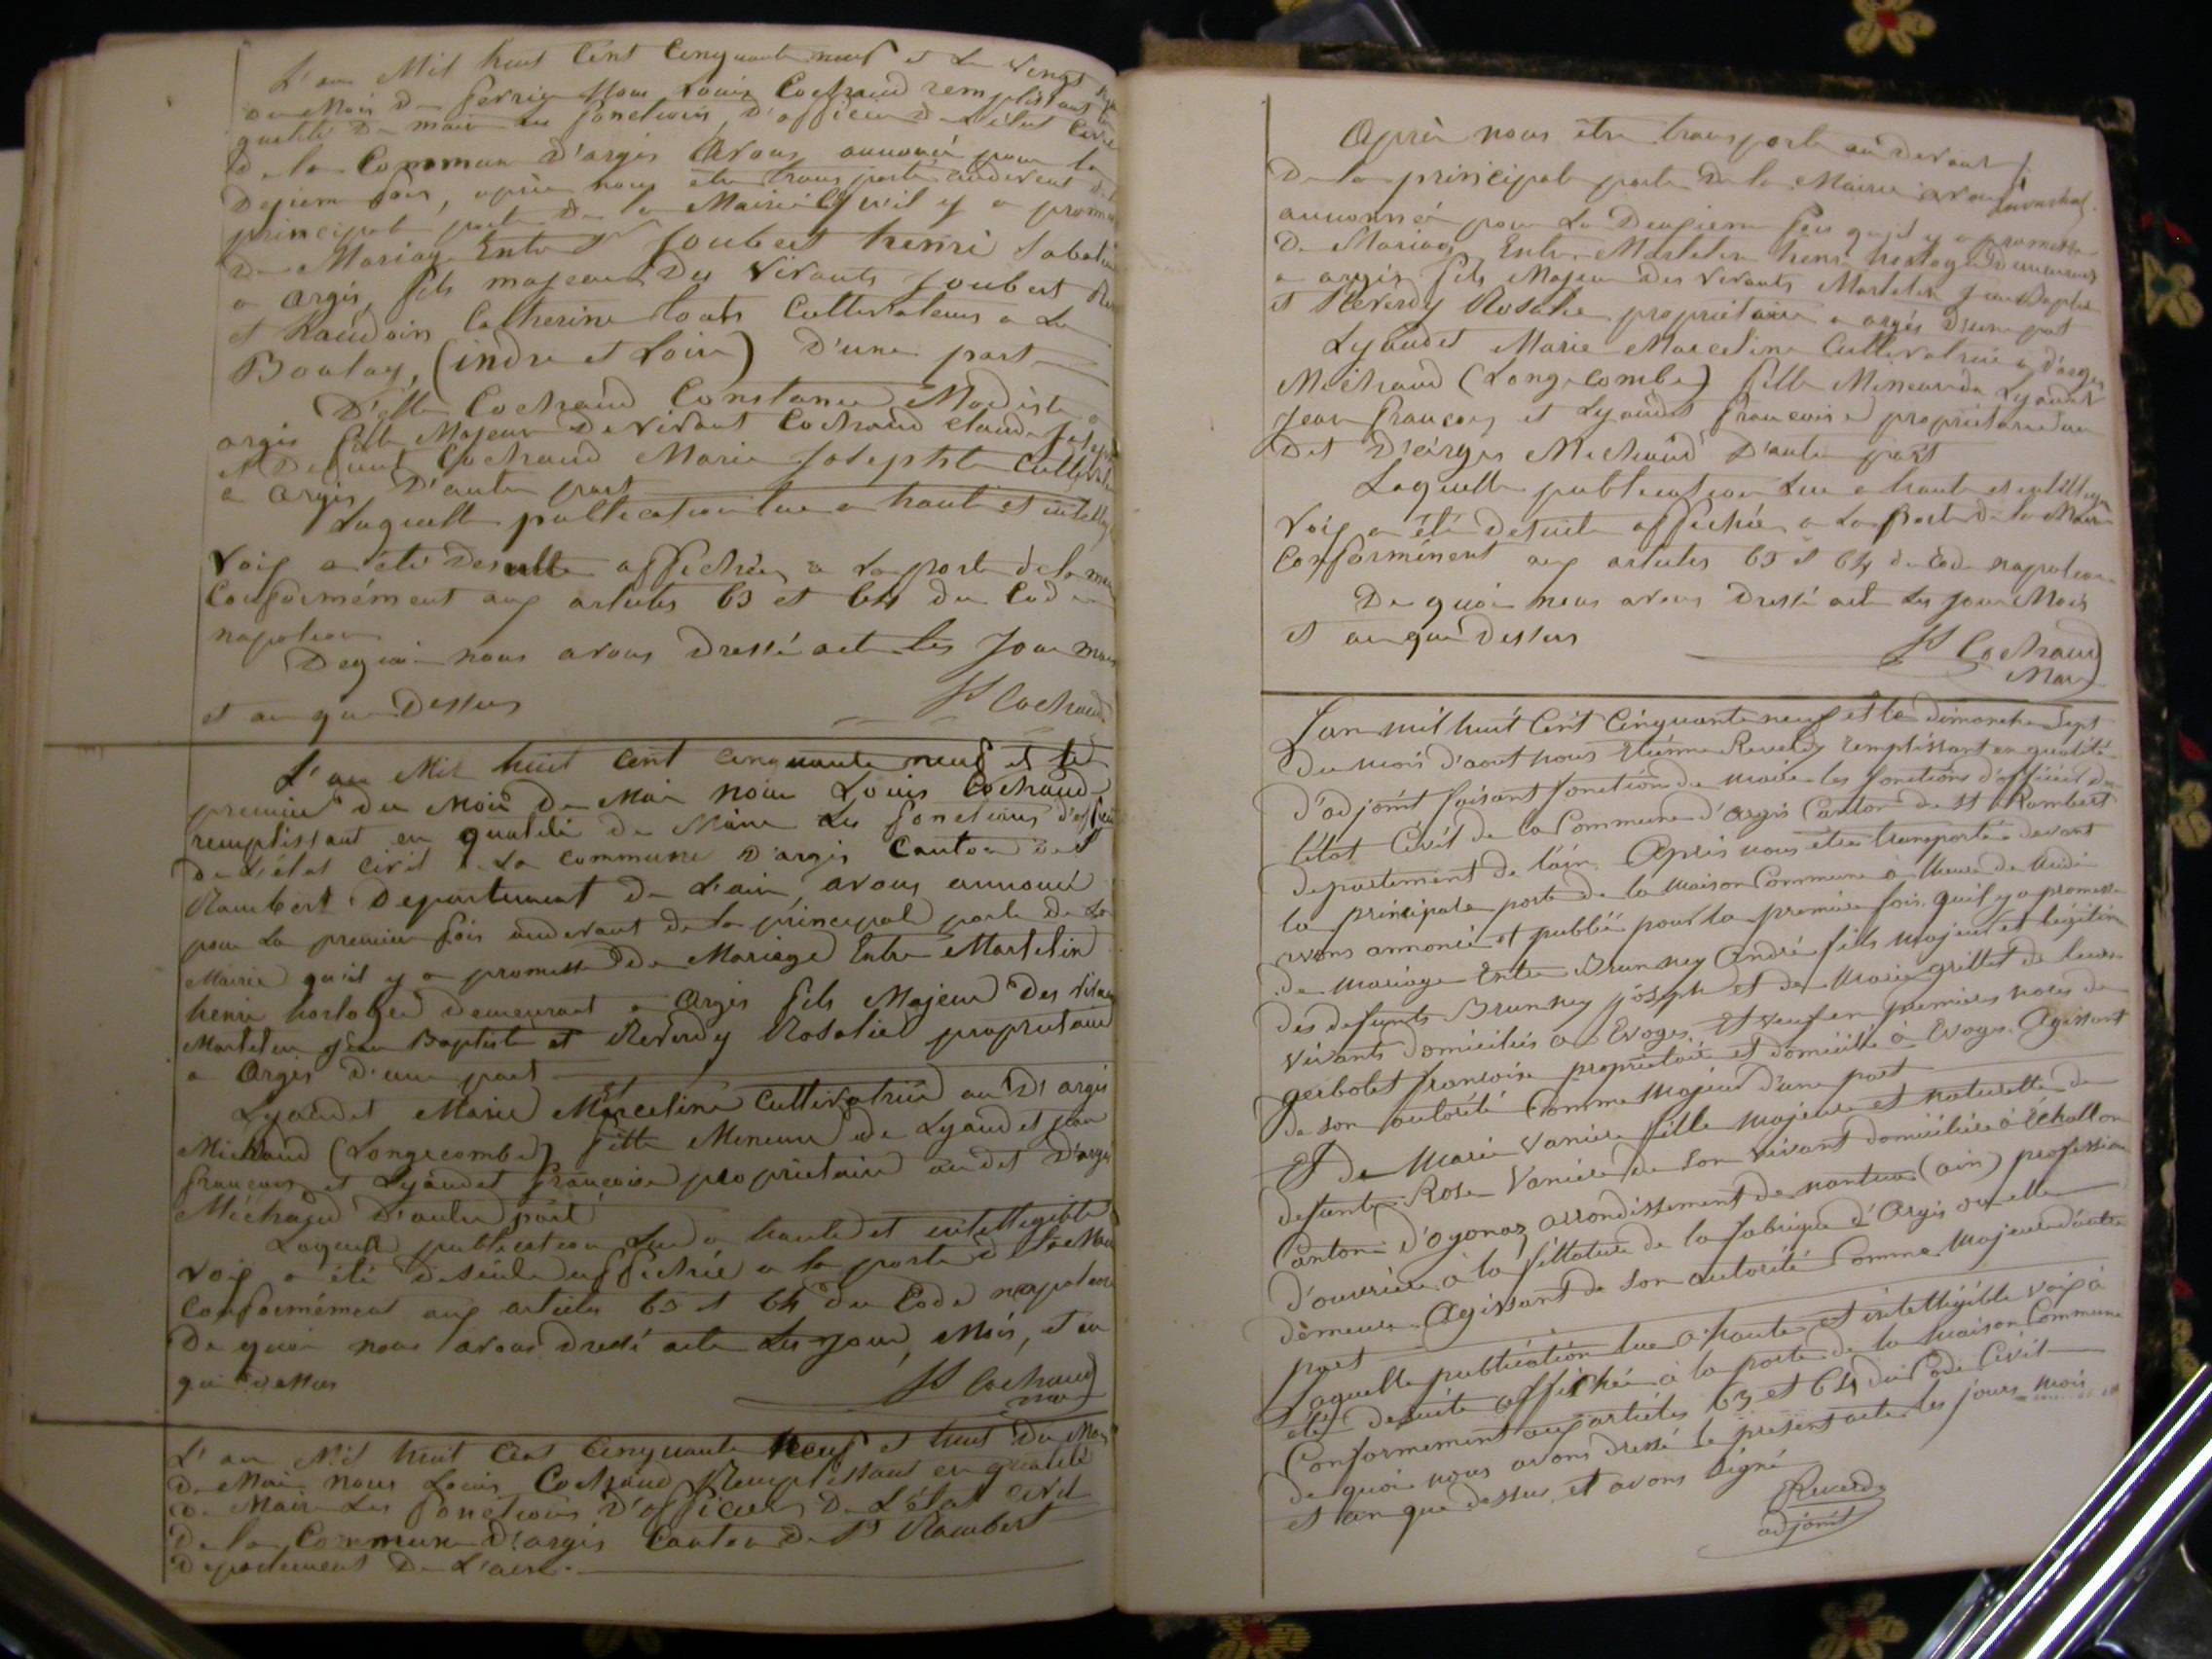 L'an Mil huit Cent Cinquante neuf et Le Vingt
du Mois De fevrier Nous Louis Cochaud remplissant en
qualité De maire les fonctions D'officier De L'état Civil
de la Commune D'argis Avons annoncé pour la
Dexiem fois, après nous etre transporté audevant de la
principal porte De la Mairie Qu'il y a promesse
De Mariage Entre Joubert henri
a Argis, fils majeur Des Vivants Joubert
et Raudoin Catherine touts Cultivateurs a Le
Boulay, (indre et Loire) D'une part
D'elle Cochaud Constance Modeste a
argis fille Majeur De vivant Cochaud Claude Joseph
et Defunt Cochaud Marie Josephte
a Argis D'autre part
Laquelle publication lue a haute et intelligible
Voix a été Desuitte affichée a La porte de la mairie
Conformément aux articles 63 et 64 du Code
napoleon
Dequoi nous avons Dressé acte les Jour mois
et an que Dessus L Cochaud
L'an Mil huit Cent Cinquante neuf et le
premier du Mois De Mai nous Louis Cochaud
remplissant en qualité De Maire Les fonctions d'officier
De L'état Civil De La commune D'argis Canton de St
Rambert Departement De L'ain, avons annoncé
pour La premier fois audevant de la principal porte de La
Mairie qu'il y a promesse De Mariage Entre Martelin
henri horloger Demeurant a Argis fils Majeur Des vivants
Martelin Jean Baptiste et Reverdy Rosalie proprietaire
a Argis D'une part
Et
Lyaudet Marie Marceline Cultivatrice au Dt argis
Michaud (Longecombe) fille Mineure de Lyaudet Jean
françois et Lyaudet françoise proprietaire au dit D'argis
Michaud D'autre part
Laquelle publication Lue a haute et intelligible
voix a été Desuite affichée a la porte de La Mairie
Conformément aux articles 63 et 64 du Code napoleon
De quoi nous avons Dressé acte Les Jour, Mois, et an
que dessus L Cochaud
maire
L'an Mil huit Cent Cinquante Neuf et huit Du Mois
De Mai nous Louis Cochaud Remplissant en qualité
De Maire Les fonctions D'officier De L'état Civil
De la Commune D'argis Canton De St Rambert
Departement De L'ain.
Après nous être transporté au devant
De la principale porte De la Mairie avons
annonncé pour La Deuxiem fois qu'il y a promesse
De Mariage Entre Martelin henri horloger Demeurant
a argis fils Majeur Des Vivants Martelin Jean Baptiste
et Reverdy Rosalie proprietaire a argis D'une part
Lyaudet Marie Marceline Cultivatrice a D'argis
Michaud (Longecombe) fille Mineure de Lyaudet
Jean françois et Lyaudet françoise proprietaire au
Dit D'argis Michaud D'autre part
Laquelle publication Lue a haute et intelligible
Voix a été Desuite affichée a La porte De la Mairie
Conformément aux articles 63 et 64 du Code napoleon
De quoi nous avons Dressé acte Les jour Mois
et an que Dessus L Cochaud
Maire
L'an mil huit Cent Cinquante neuf et le dimanche Sept
Du mois d'aout nous Etienne Reverdy remplissant en qualité
d'adjoint faisant fonction de maire les fonctions d'officier de
l'état Civil de la Commune d'argis Canton de St Rambert
departement de l'ain Après nous etre transporté devant
la principale porte de la Maison Commune à l'heure de Midi
avons annoncé et publié pour la première fois, qu'il y a promesse
de mariage Entre Brunney André fils majeur et légitime
des defunts Brunney Joseph et de Marie grillet de leurs
vivants domiciliés à Evoges, Et veuf en premières noces de
gerbolet francoise propriétaire et domicilié à Evoges Agissant
de son autorité Comme Majeur d'une part
Et De Marie Vanière fille majeure et naturelle de
defunte Rose Vanière de son vivant domiciliée à Echallon
Canton d'oyonaz arrondissement de nantua (ain) profession
d'ouvrière à la filature de la fabrique d'Argis ou elle
demeure Agissant de son autorité Comme Majeure d'autre
part
Laquelle publication lue a haute et intelligible voix à
été desuite affichée à la porte de la Maison Commune
Conformement aux articles 63 et 64 du Code Civil
de quoi nous avons dressé le present acte les jours mois
et an que dessus et avons signé
Reverdy
adjoint